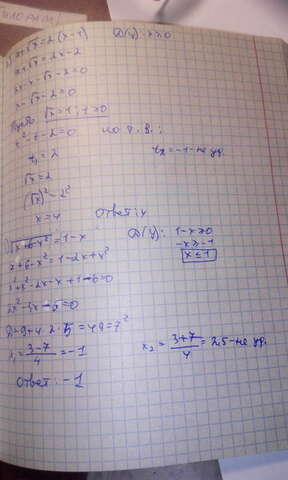 x+√x=2(x-1) D(y): x≥0
x+√x=2x-2
2x-x-√x-2=0
x-√x-2=0
Пусть √x=t; t≥0
t²-t-2=0 по т. В.:
t₁=2 t₂=-1-не уд.
√x=2
(√x)²=2²
x=4
Ответ: 4
√x+6-x²=1-x D(y): 1-x≥0
x+6-x²=1-2x+x² -x≥-1
x²+x²-2x-x+1-6=0 x≤1
2x²-3x-5=0
D=9+4·2·5=49=7²
x₁=3-7/4=-1 x₂=3+7/4=2,5-не уд.
Ответ: -1